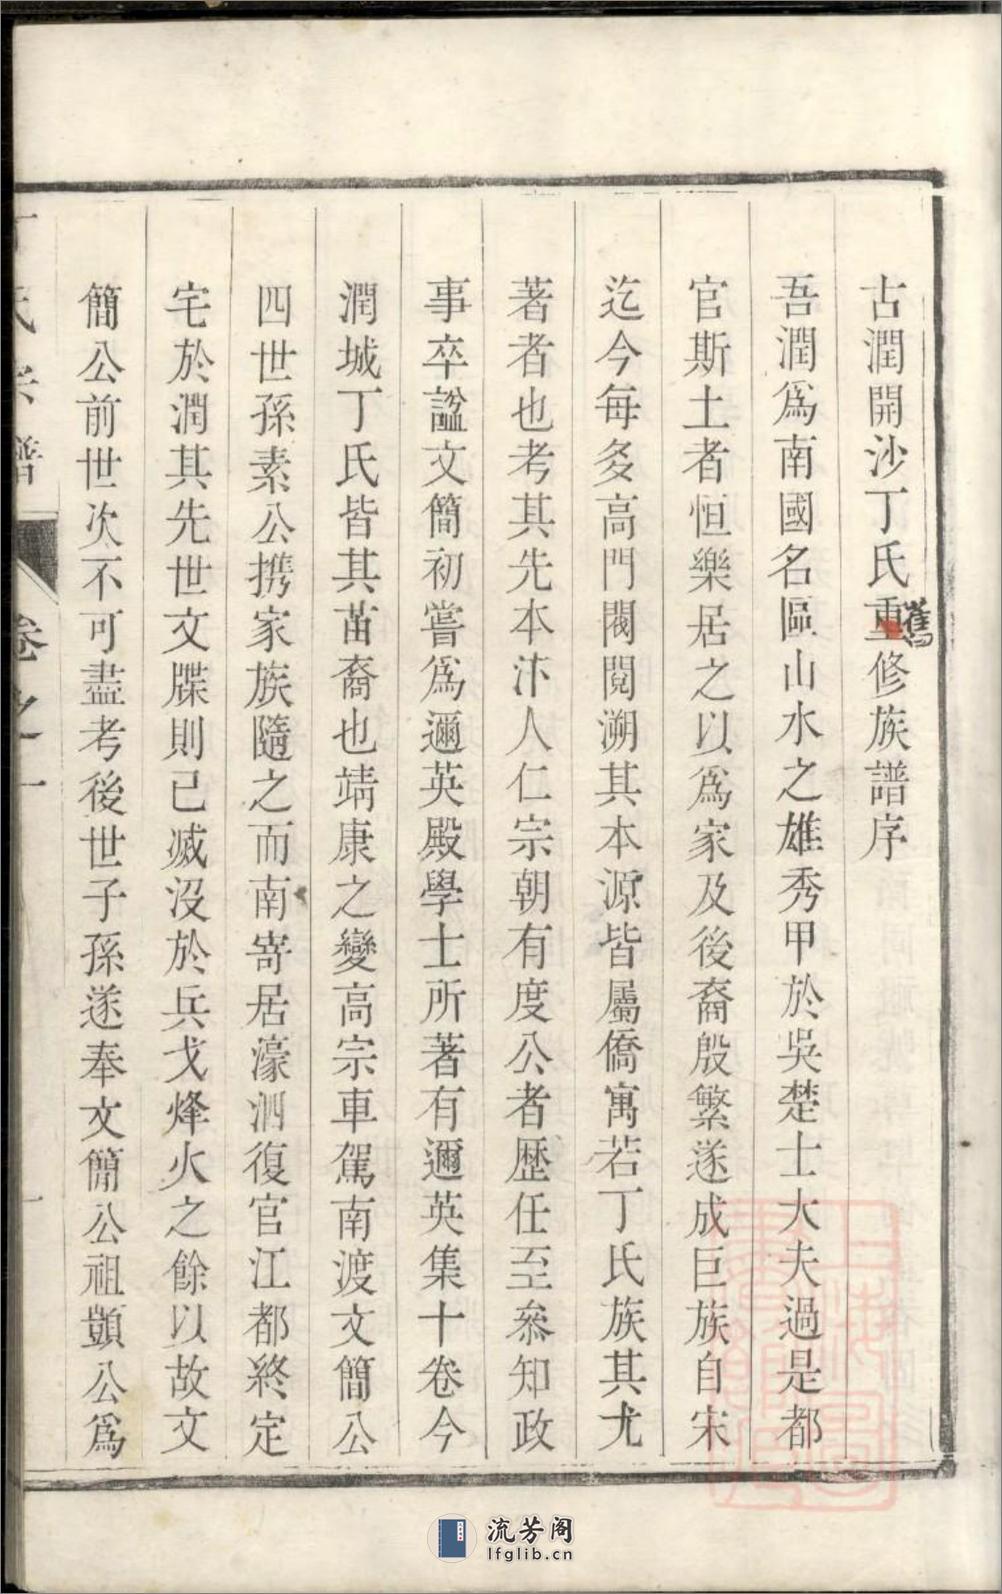 古潤開沙丁氏重修族譜序
舊
吾潤爲南國名區山水之雄秀甲於吳楚士大夫過是都
官斯土者恒樂居之以爲家及後裔殷繁遂成巨族自宋
迄今每多高門閥閱溯其本源皆屬僑寓若丁氏族其尤
著者也考其先本汴人仁宗朝有度公者歷任至叅知政
事卒諡文簡初嘗爲邇英殿學士所著有邇英集十卷今
潤城丁氏皆其苗裔也靖康之變高宗車駕南渡文簡公
四世孫素公携家族隨之而南寄居濠泗復官江都終定
宅於潤其先世文牒則已滅沒於兵戈烽火之餘以故文
簡公前世次不可盡考後世子孫遂奉文簡公祖顗公爲
氏宗譜
卷之一
一
流芳阁
lfglib.cn